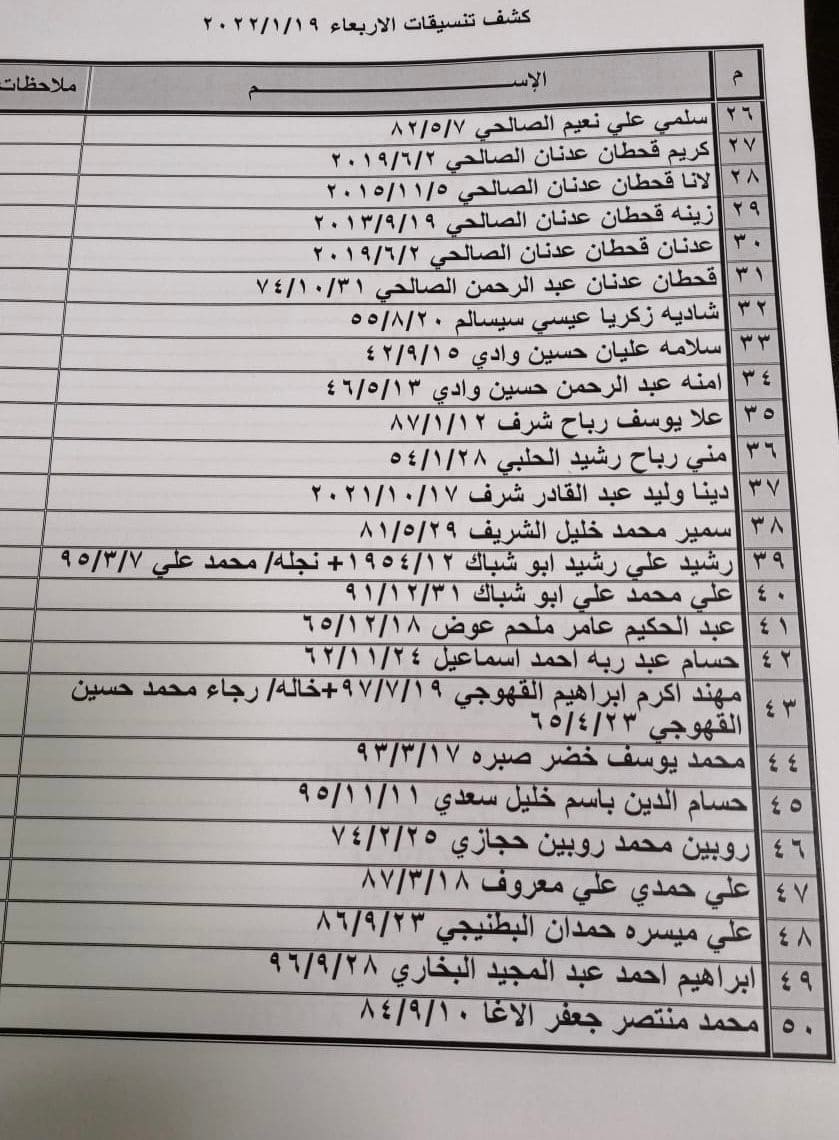 كشف تنسيقات الاربعاء ٢٠٢٢/١/١٩
م الإســـــــــم ملاحظات
٢٦ سلمي علي نعيم الصالحي ٨٢/٥/٧
٢٧ كريم قحطان عدنان الصالحي ٢٠١٩/٦/٢
٢٨ لانا قحطان عدنان الصالحي ٢٠١٥/١١/٥
٢٩ زينه قحطان عدنان الصالحي ٢٠١٣/٩/١٩
٣٠ عدنان قحطان عدنان الصالحي ٢٠١٩/٦/٢
٣١ قحطان عدنان عبد الرحمن الصالحي ٧٤/١٠/٣١
٣٢ شاديه زكريا عيسي سيسالم ٥٥/٨/٢٠
٣٣ سلامه عليان حسين وادي ٤٢/٩/١٥
٣٤ امنه عبد الرحمن حسين وادي ٤٦/٥/١٣
٣٥ علا يوسف رباح شرف ٨٧/١/١٢
٣٦ مني رباح رشيد الحلبي ٥٤/١/٢٨
٣٧ دينا وليد عبد القادر شرف ٢٠٢١/١٠/١٧
٣٨ سمير محمد خليل الشريف ٨١/٥/٢٩
٣٩ رشيد علي رشيد ابو شباك ١٩٥٤/١٢+ نجله/ محمد علي ٩٥/٣/٧
٤٠ علي محمد علي ابو شباك ٩١/١٢/٣١
٤١ عبد الحكيم عامر ملحم عوض ٦٥/١٢/١٨
٤٢ حسام عبد ربه احمد اسماعيل ٦٢/١١/٢٤
٤٣ مهند اكرم ابراهيم القهوجي ٩٧/٧/١٩+خاله/ رجاء محمد حسين
القهوجي ٦٥/٤/٢٣
٤٤ محمد يوسف خضر صبره ٩٣/٣/١٧
٤٥ حسام الدين باسم خليل سعدي ٩٥/١١/١١
٤٦ روبين محمد روبين حجازي ٧٤/٢/٢٥
٤٧ علي حمدي علي معروف ٨٧/٣/١٨
٤٨ علي ميسره حمدان البطنيجي ٨٦/٩/٢٣
٤٩ ابراهيم احمد عبد المجيد البخاري ٩٦/٩/٢٨
٥٠ محمد منتصر جعفر الاغا ٨٤/٩/١٠